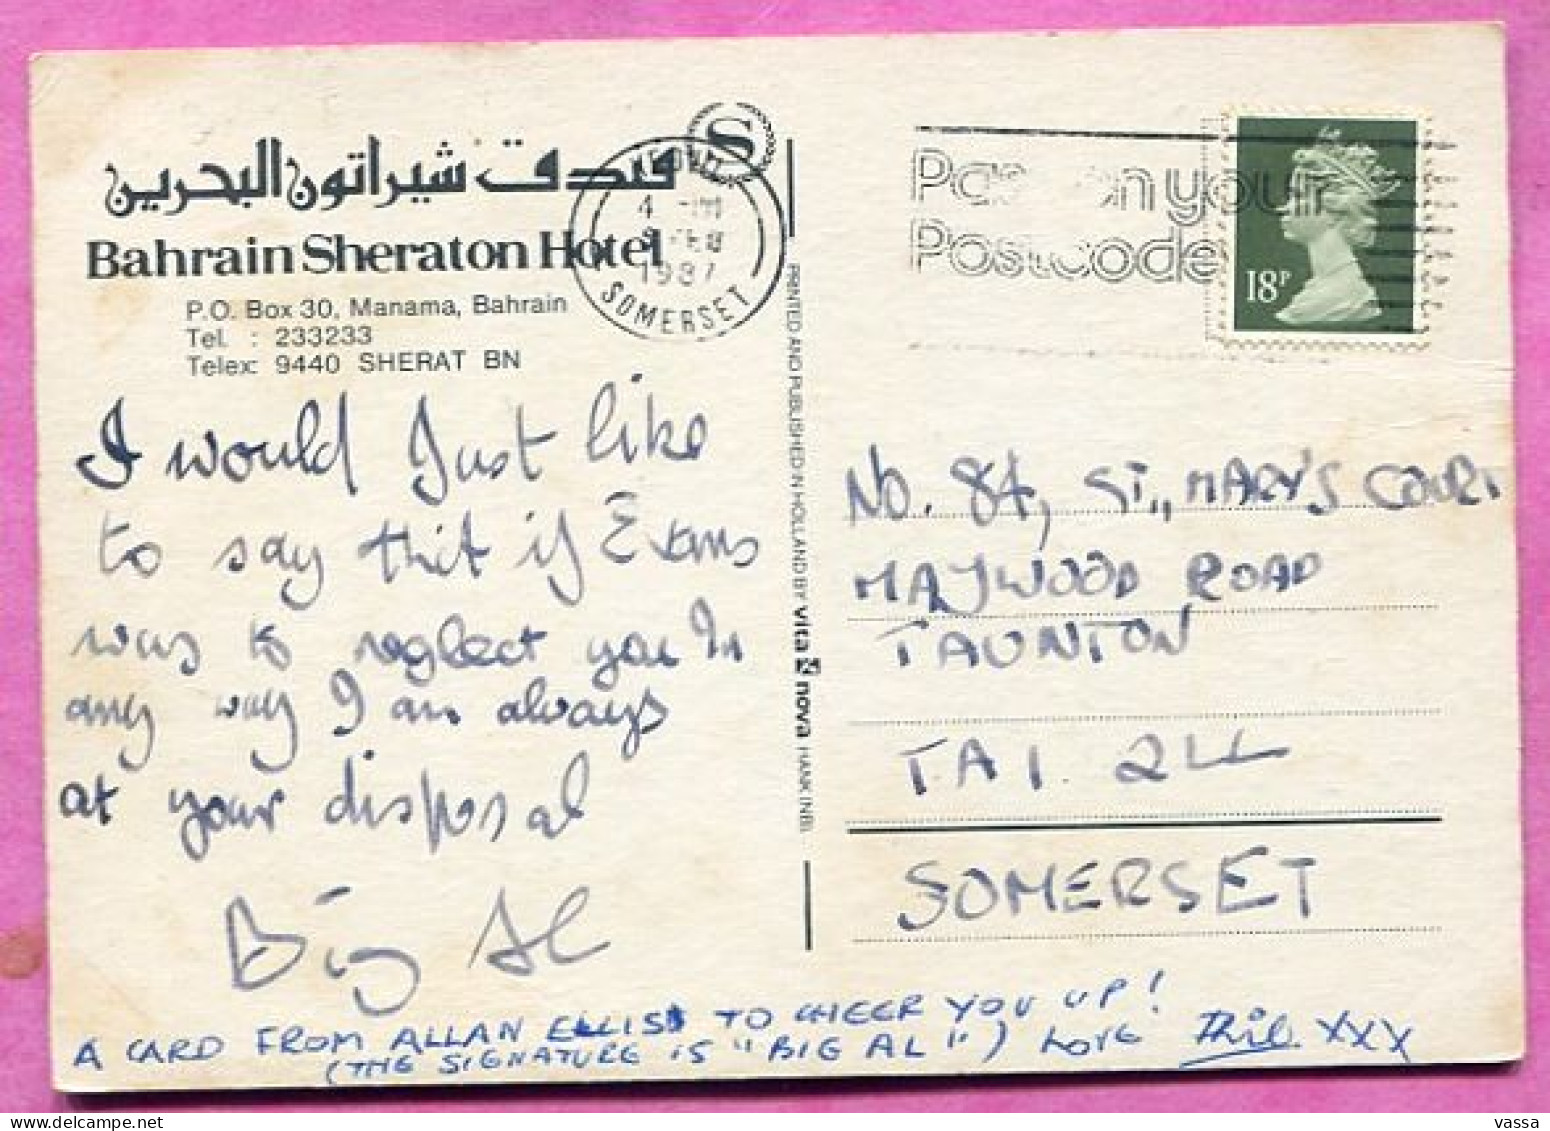 فندق شيراتون البحرين
Bahrain Sheraton Hotel
P.O. Box 30, Manama, Bahrain
Tel. : 233233
Telex: 9440 SHERAT BN
I would Just like
to say that if Evans
was to neglect you In
any way I am always
at your disposal
Big Al
A CARD FROM ALLAN ELLIS TO CHEER YOU UP!
(THE SIGNATURE IS "BIG AL") LOVE Phil. XXX
PRINTED AND PUBLISHED IN HOLLAND BY vita nova HANK INBL
S
4 - PM
FEB
1987
SOMERSET
Pass on your
Postcode
18P
No. 84, ST., MARY'S COURT
MAYWOOD ROAD
TAUNTON
TA1. 2LL
SOMERSET
vassa